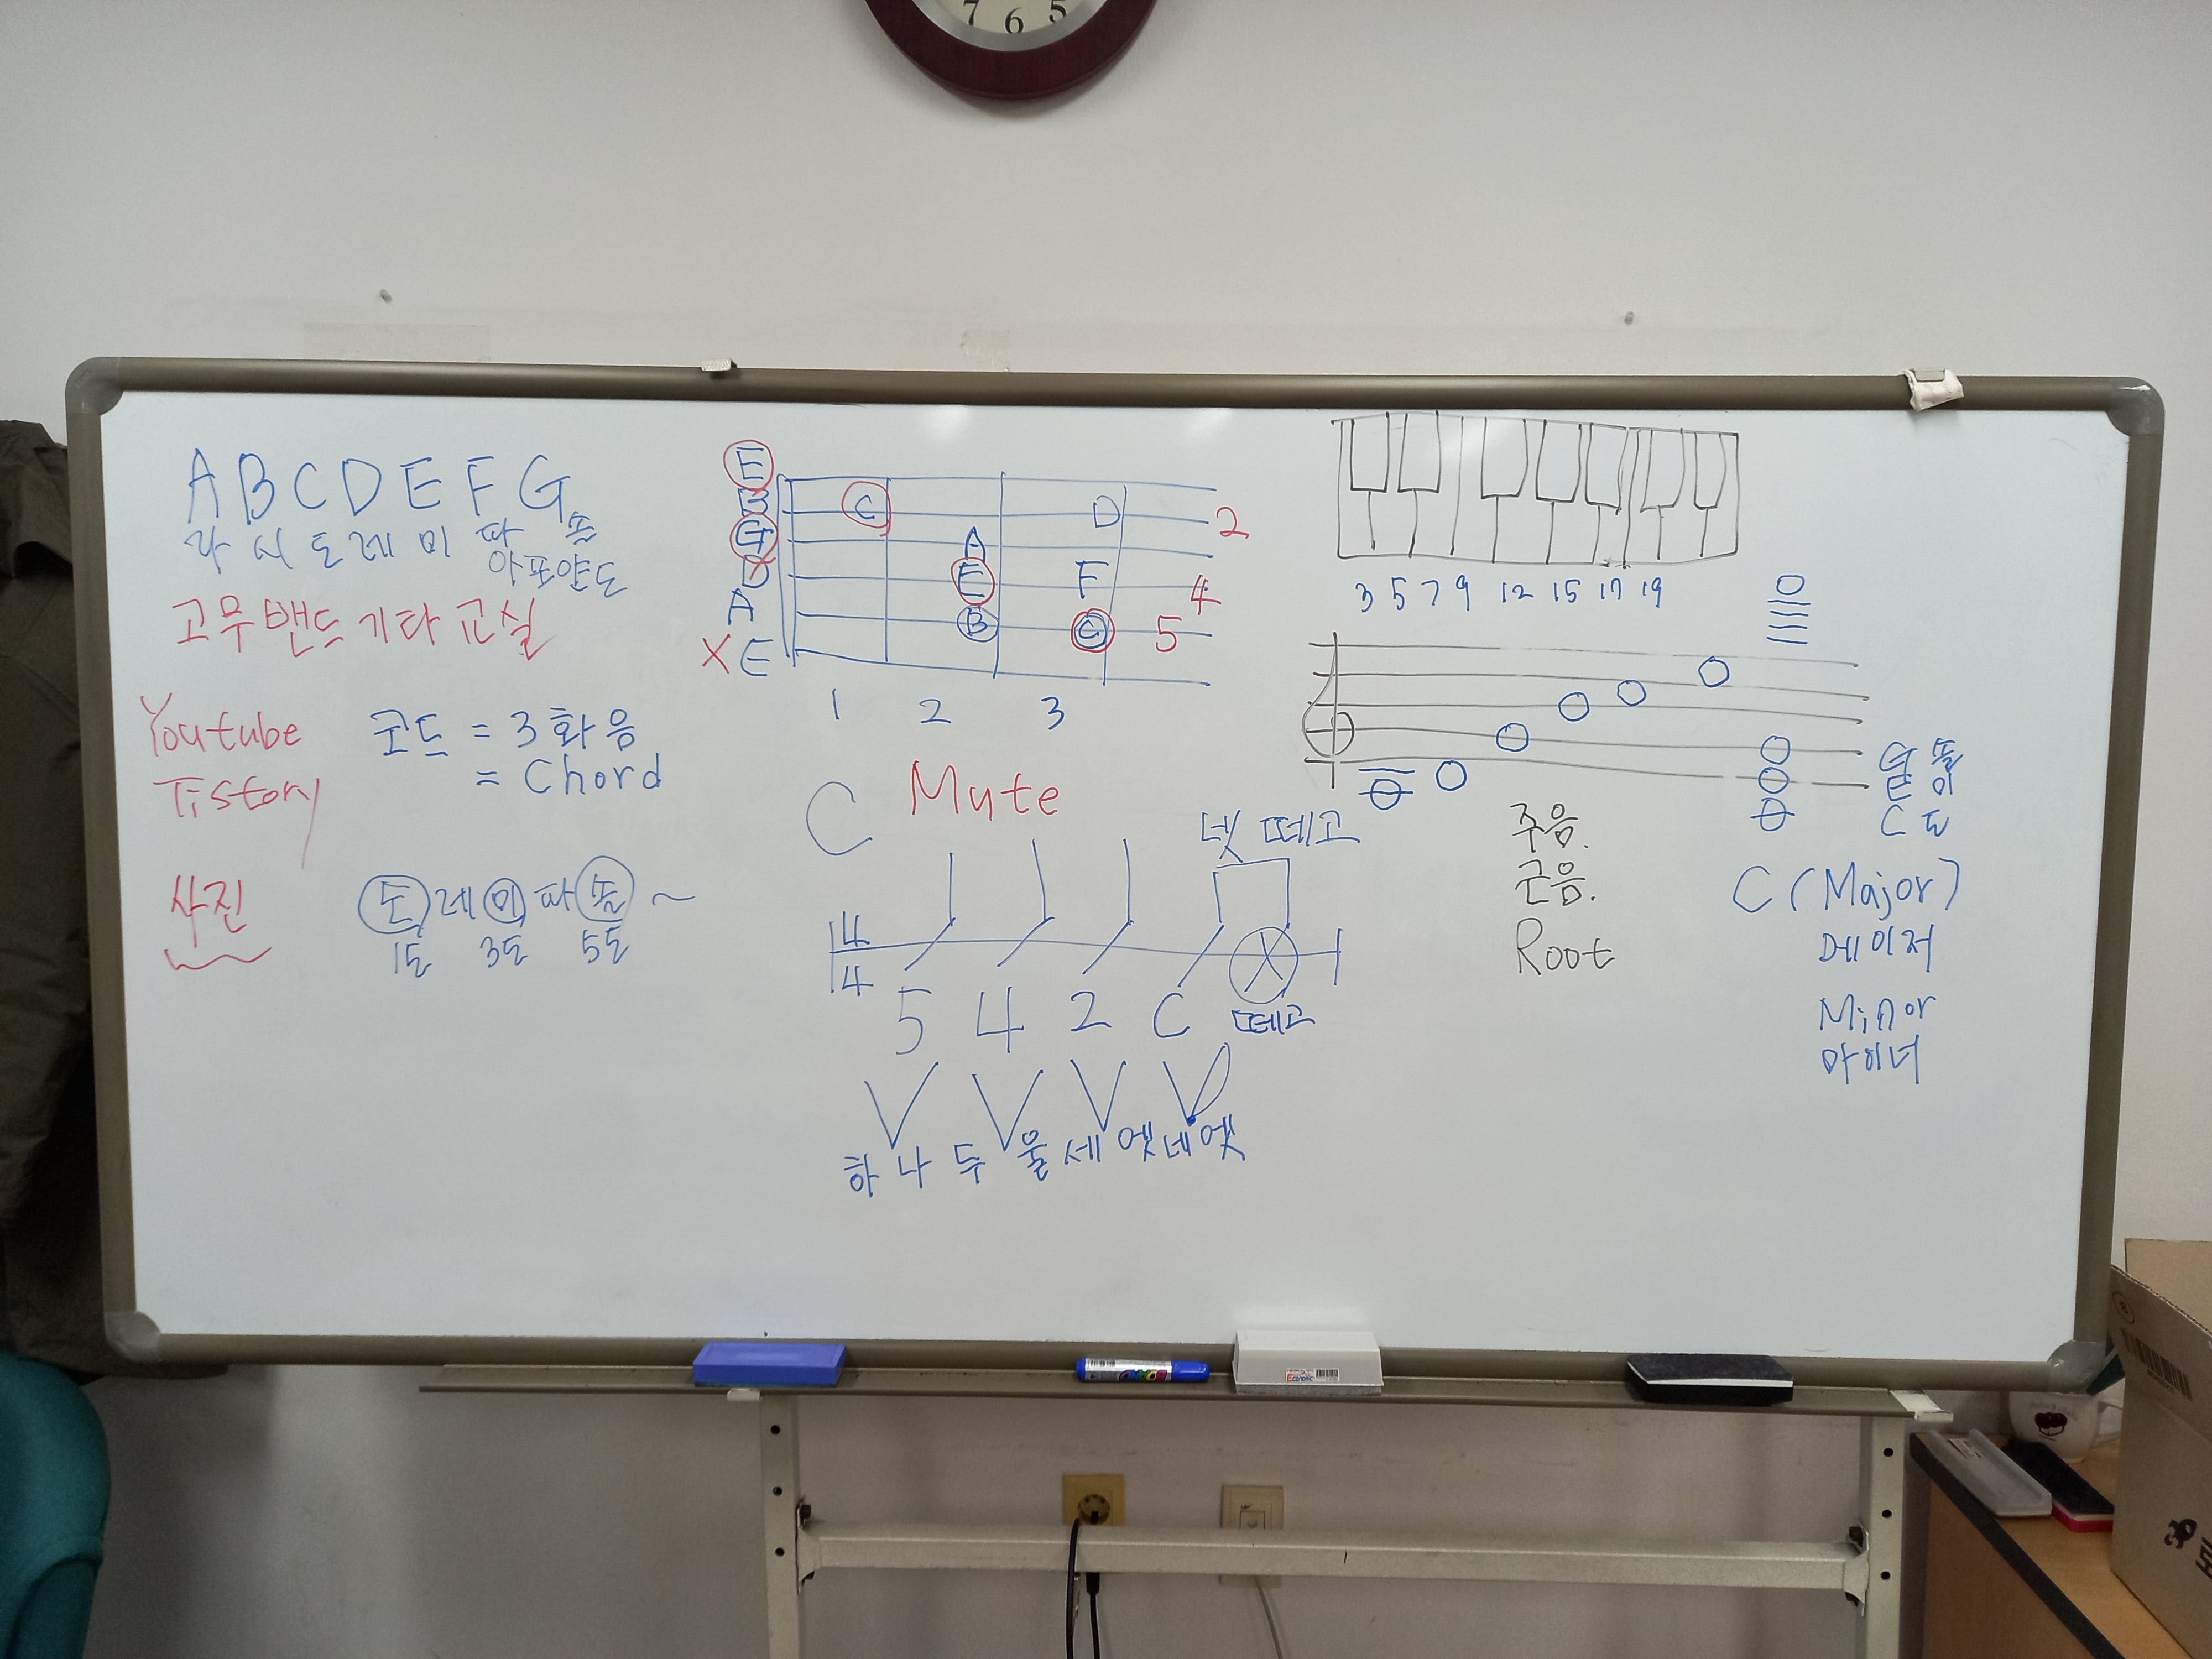 7 6 5
A B C D E F G
라 시 도 레 미 파 솔
아포얀도
고무밴드 기타 교실
Youtube
Tistory
사진
코드 = 3화음
= Chord
도 레 미 파 솔 ~
1도 3도 5도
E
B C D 2
G A
D E F 4
A B C 5
X E
1 2 3
C Mute
넷 떼고
4
4
5 4 2 C 떼고
하나 두울 세엣 네엣
3 5 7 9 12 15 17 19
G 솔
E 미
C 도
주음.
근음.
Root
C (Major)
메이저
Minor
마이너